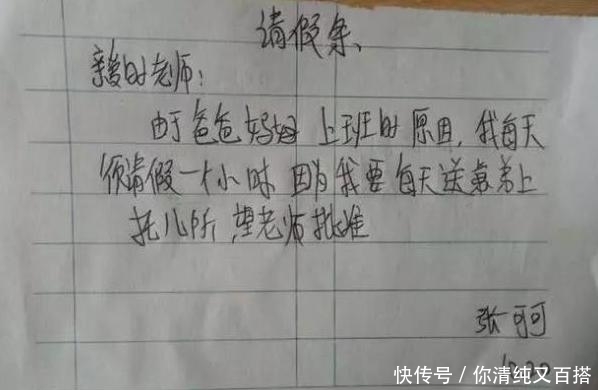 请假条、
亲爱的老师：
由于爸爸妈妈上班的原因，我每天
须请假一个小时因为我要每天送弟弟上
托儿所，望老师批准
张可可
快传号 / 你清纯又百搭